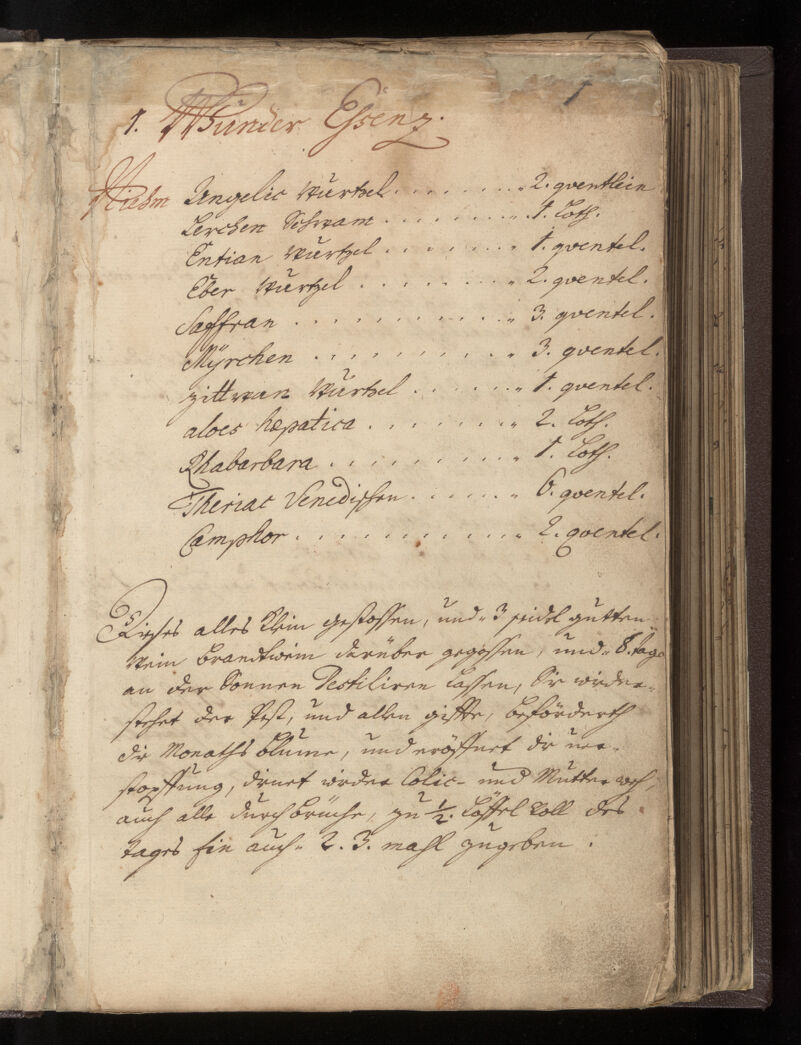 1
1. Wunder Essenz.
Niehm Angelic Wurtzel . . . . . . . . „ 2. qventlein
Lerchen Schwam . . . . . . . „ 1. Loth.
Entian Wurtzel . . . . . . . „ 1. qventel.
Eber Wurtzel . . . . . . . „ 2. qventel.
Saffran . . . . . . . . . . „ 3. qventel.
Mÿrchen . . . . . . . . . „ 3. qventel.
Zittwan Wurtzel . . . . . . „ 1. qventel.
aloes hepatica . . . . . . . „ 2. Loth.
Rhabarbara . . . . . . . . „ 1. Loth.
Theriac Venedischen . . . . . „ 6. qventel.
Camphor . . . . . . . . . . . 2. qventel.
Dieses alles klein gestossen, und 3 seidel gutten
Wein brandtwein darüber gegossen, und 8. tage
an der Sonnen Destiliren lassen, Sie wieder-
stehet der Pest, und allen giffte, beförderth
die Monaths blume, und eröffnet die ver-
stopffung, dienet wieder Colic- und Mutter weh,
auch alle durchbrüche, zu ½. Löffel voll des
tages ein auch 2. 3. mahl zugeben .